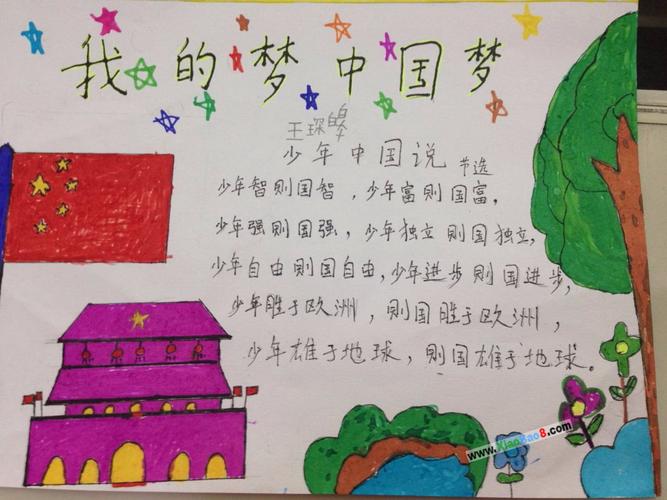 我的梦中国梦
王琛皞
少年中国说 节选
少年智则国智，少年富则国富，
少年强则国强，少年独立则国独立，
少年自由则国自由，少年进步则国进步，
少年胜于欧洲，则国胜于欧洲，
少年雄于地球，则国雄于地球。
www.XiaoBao8.com